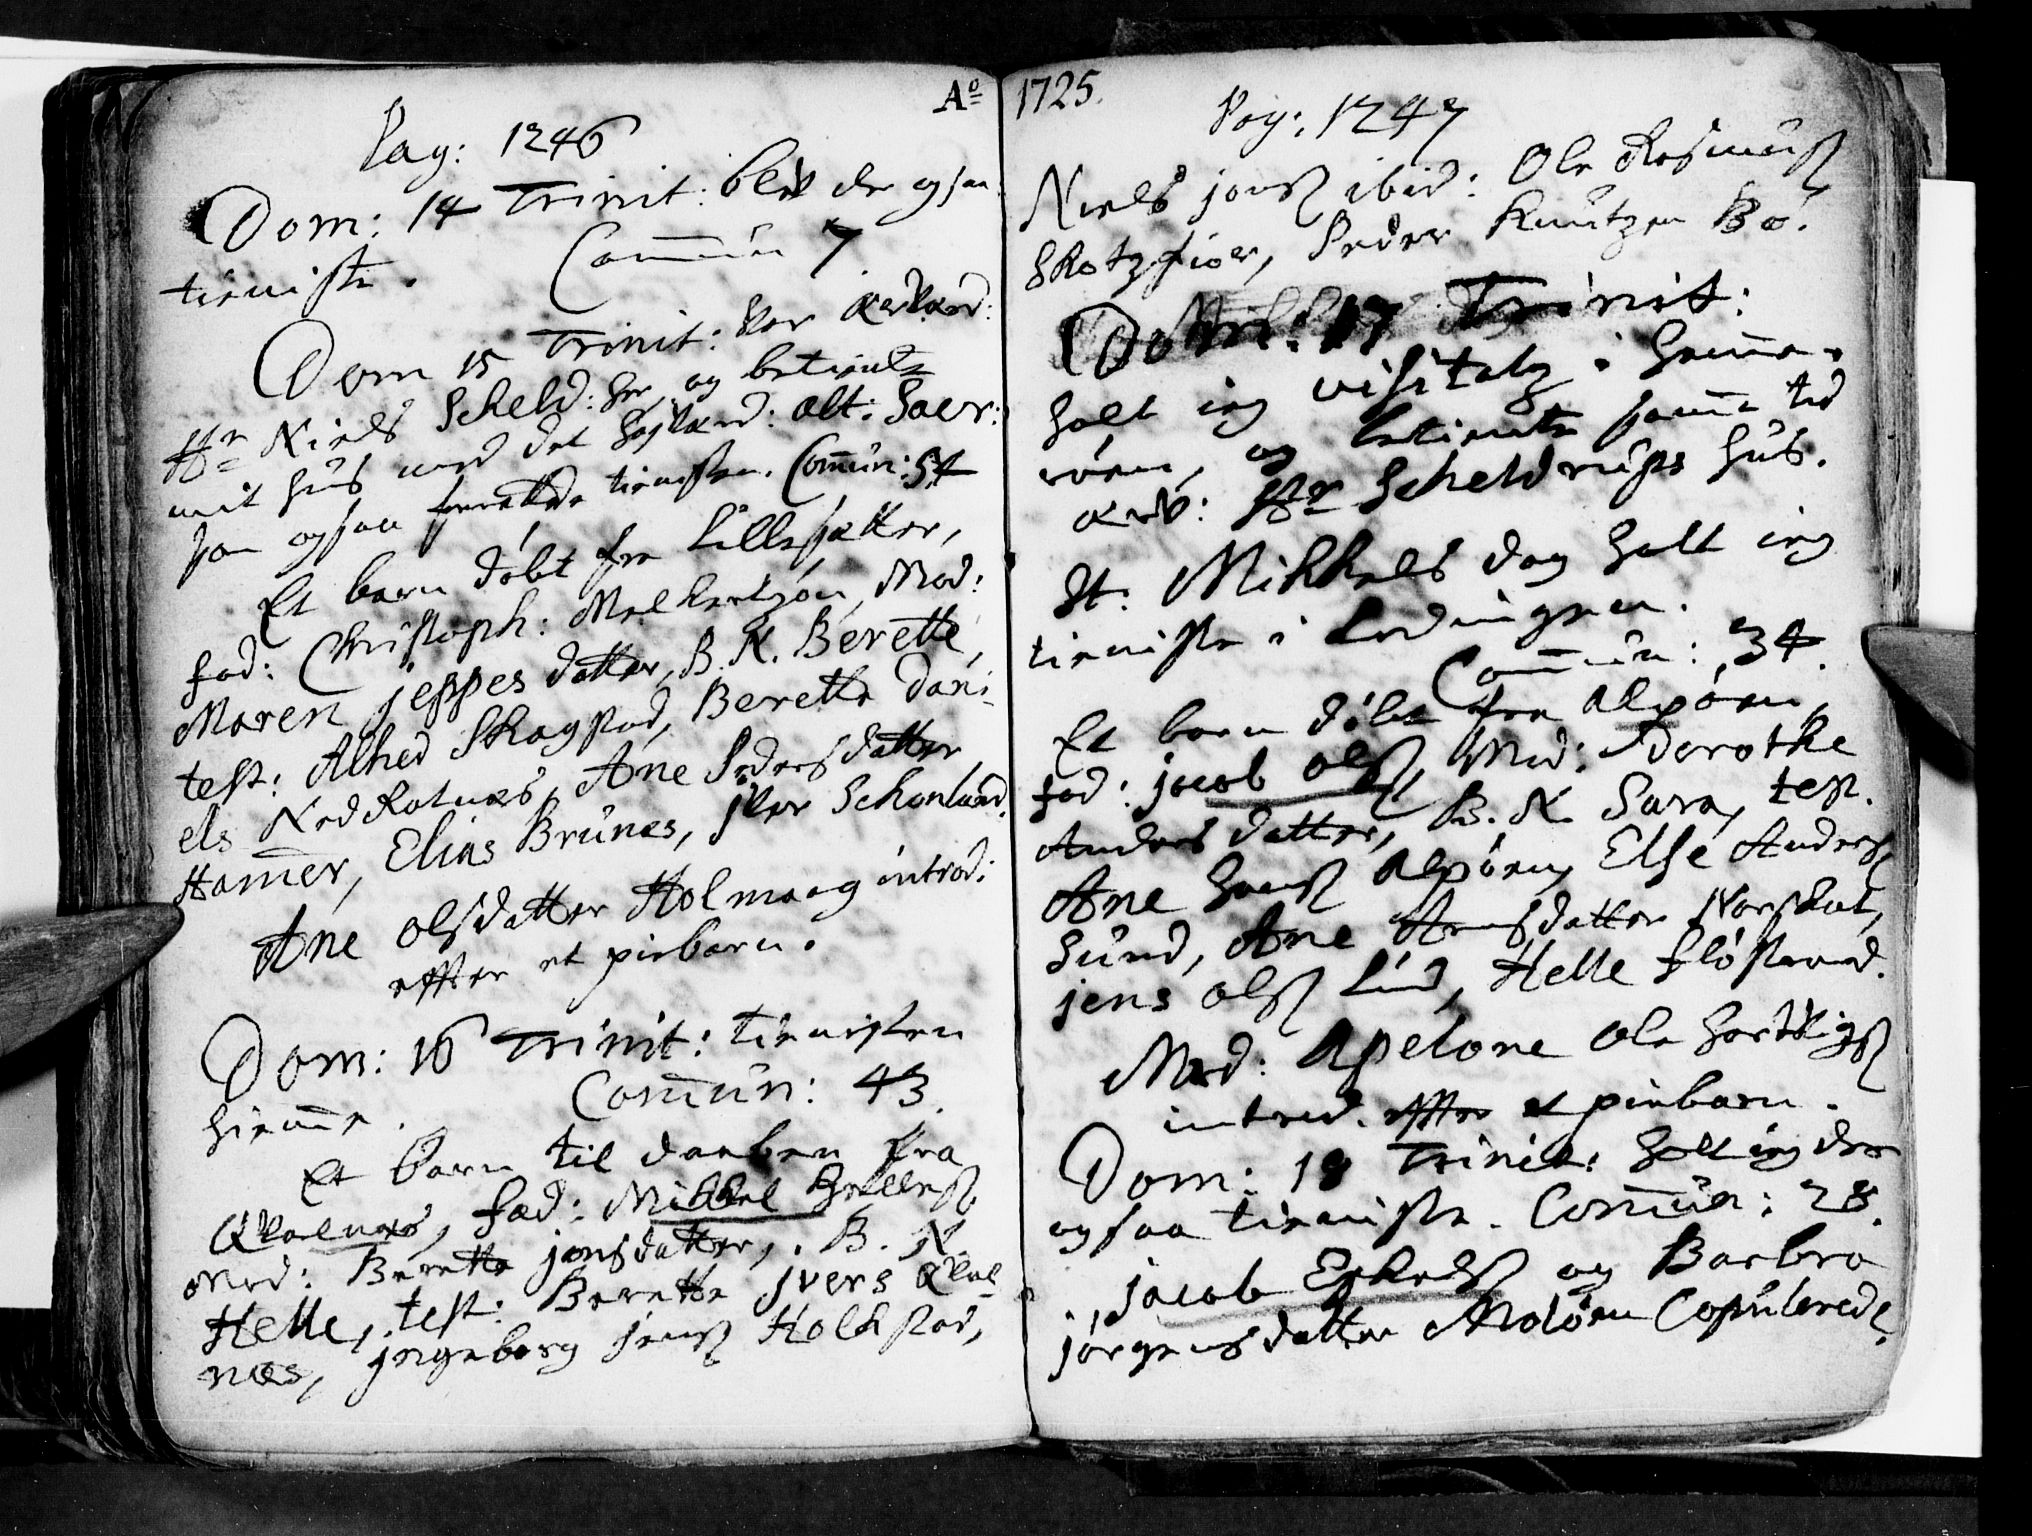 Aº
Pag: 1246
Dom: 14 Trinit: blev der ogsaa
tieniste. Com̅un 7
Dom 15 Trinit: var
Hr Niels Scheld: her og betiente
mit hus med det alt: Sacr:
som ogsaa forrettede tienisten. Com̅un: 54
Et barn döbt fra Lillesætter,
fad: Christoph: Melkertzön, Mod:
Maren jeppes datter, B. N. Berette,
test: Alhed Skagstad, Berette Dani-
els Nedkotnes, Ane Pedersdatter
Ham̅er, Elias Brúnes, jver Schonland.
Ane olsdatter Holmaag introd:
effter et piebarn.
Dom: 16 Trinit: tienisten
hiem̅e. Com̅ún: 43.
Et barn til daaben fra
Qvalnæs, fad: Mikkel
Mod: Berette jonsdatter, B. N
Helle, test: Berette jvers Qval-
næs, jngeborg jensß Holkestad,
1725.
Pag: 1247
Niels jonß ibid: Ole Rasmusß
Skotzfior, Peder Knutzen Bö.
Dom: 17 Trinit:
holt ieg visitatz i Hem̅e-
röen, og betiente sam̅e tid
Hr Scheldrups hus.
St: Mikkels dag holt ieg
tieniste i Lodingen.
Com̅un: 34.
Et barn döbt fra
fad: jacob olsß, Mod: Dorothe
Anders datter, B. N. Sara, test.
Ane Hansß Else Andersß
sund, Ane datter
jens olsß Lind, Helle flöstrand.
Mad: Apelone Ole Hartvigsß
introd. effter et piebarn.
Dom: 18 Trinit: holt ieg der
ogsaa tieniste. Com̅ún: 28.
jacob Eskelsß og Barbro
jörgensdatter Molöen Copúlerede.